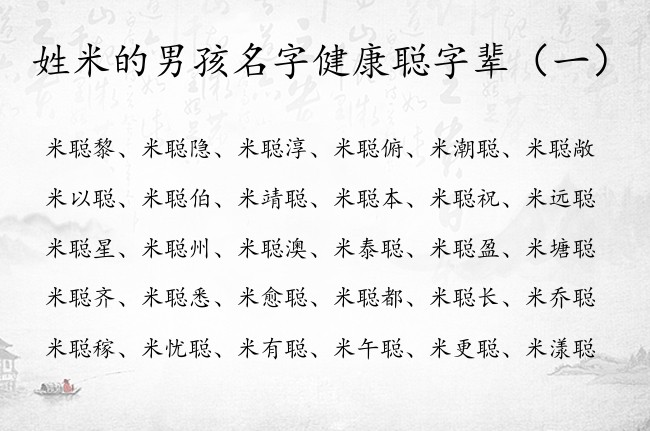 姓米的男孩名字健康聪字辈（一）
米聪黎、米聪隐、米聪淳、米聪俯、米潮聪、米聪敞
米以聪、米聪伯、米靖聪、米聪本、米聪祝、米远聪
米聪星、米聪州、米聪澳、米泰聪、米聪盈、米塘聪
米聪齐、米聪悉、米愈聪、米聪都、米聪长、米乔聪
米聪稼、米忧聪、米有聪、米午聪、米更聪、米漾聪